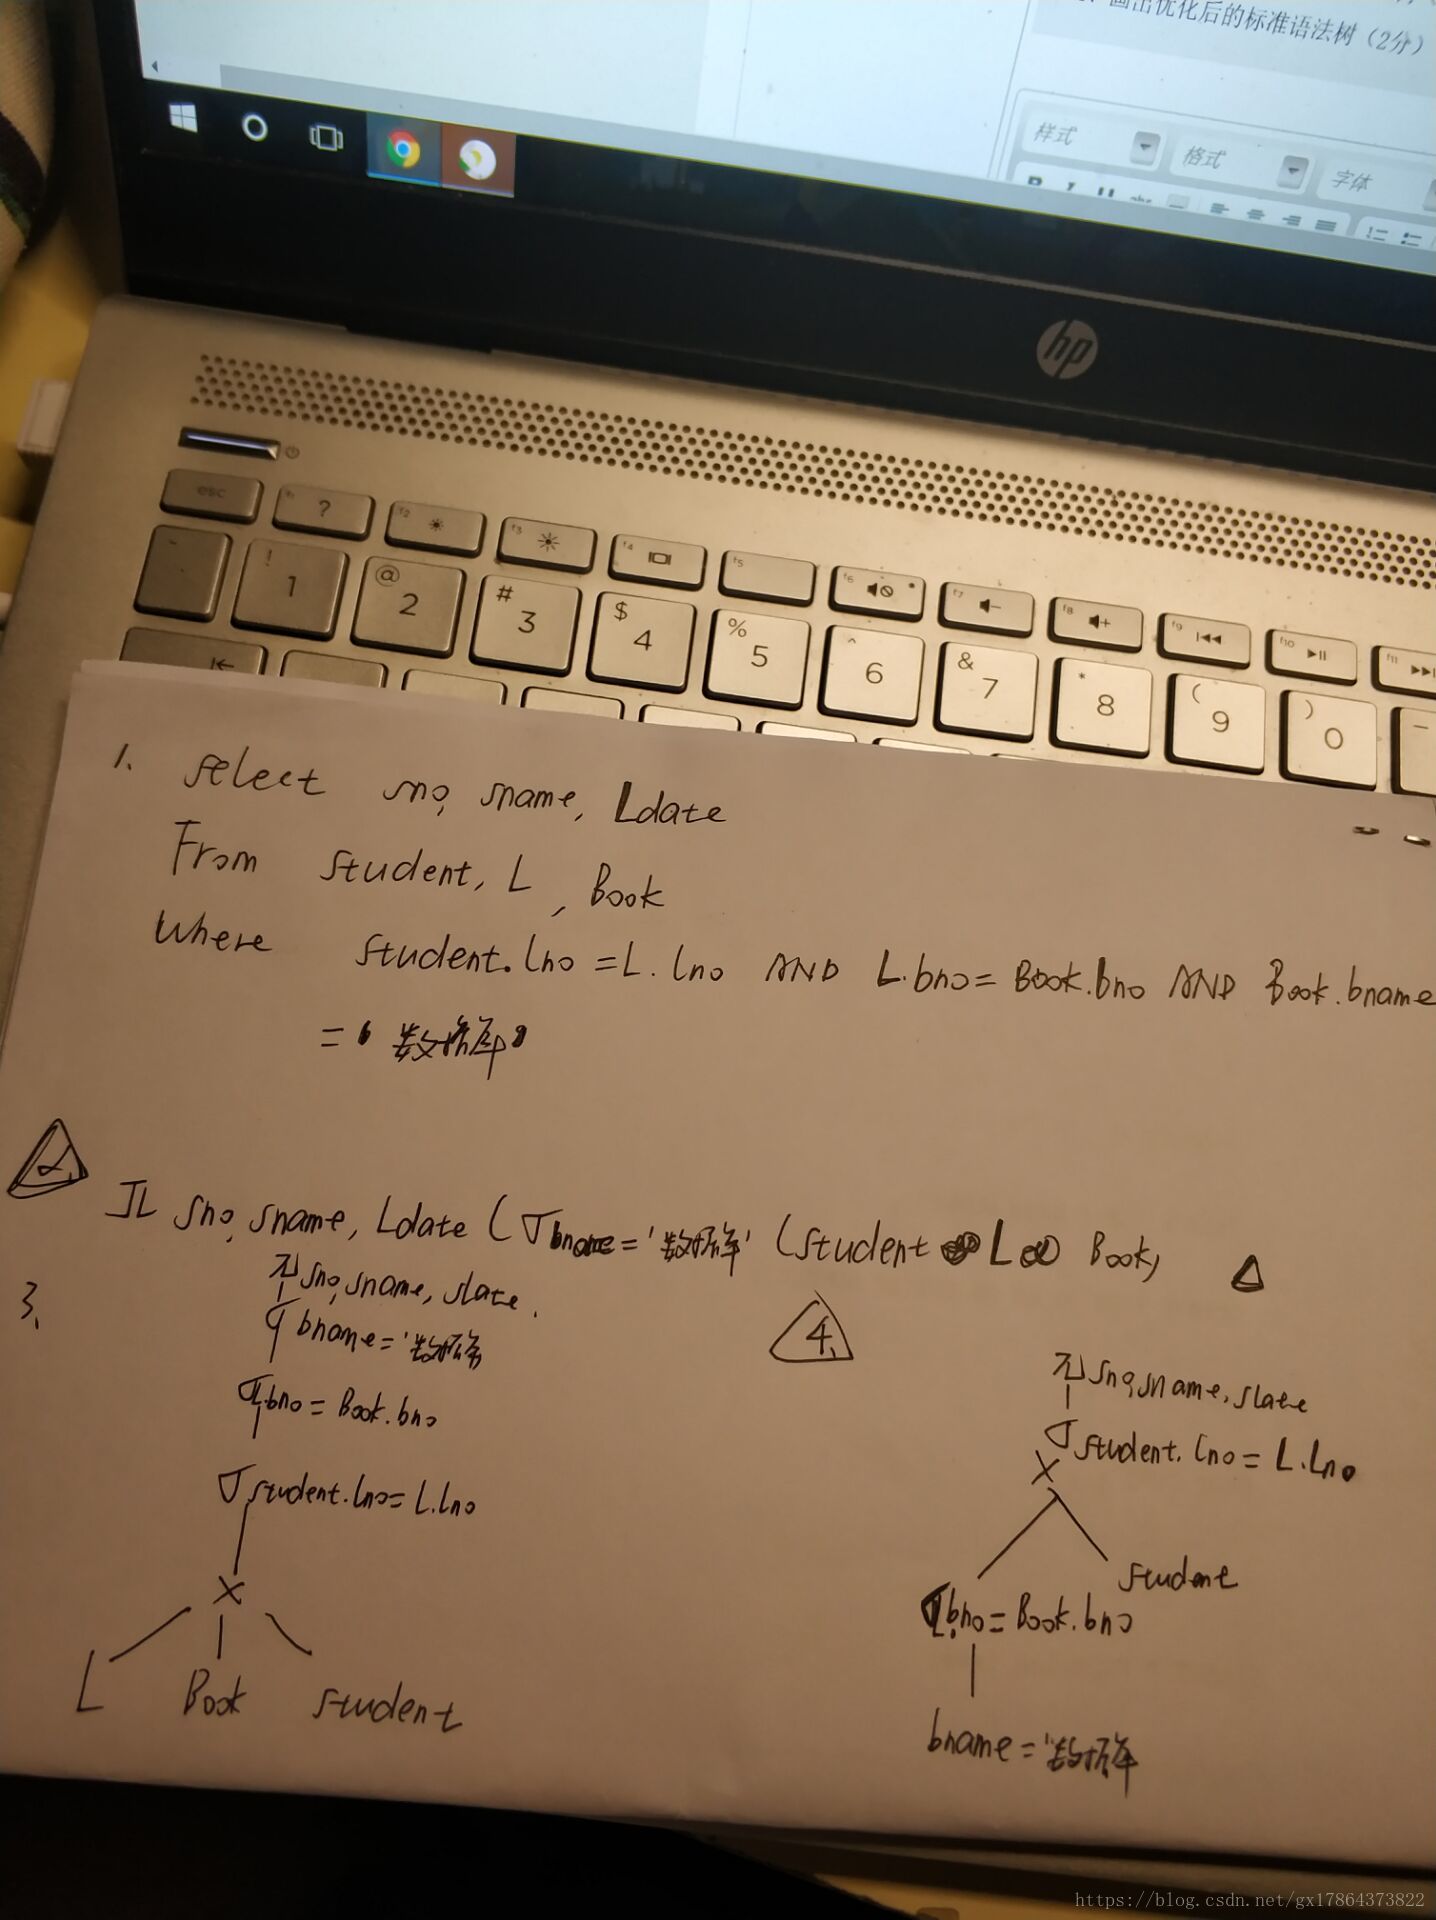 画出优化后的标准语法树（2分）
样式
格式
字体
B I U abc
hp
esc
f1 ?
f2
f3
f4
f5
f6
f7
f8
f9
f10
f11
~
! 1
@ 2
# 3
$ 4
% 5
^ 6
& 7
* 8
( 9
) 0
1. select sno, sname, Ldate
From student, L, Book
Where student.lno = L.lno AND L.bno = Book.bno AND Book.bname
= '数据库'
2. π sno, sname, Ldate (σ bname = '数据库' (student ∞ L ∞ Book)
3.
π sno, sname, slate.
σ bname = '数据库
σ L.bno = Book.bno
σ student.lno = L.lno
×
L Book student
4.
π sno, sname, slate
σ student.lno = L.Lno
×
student
σ L.bno = Book.bno
bname = '数据库
https://blog.csdn.net/gx17864373822